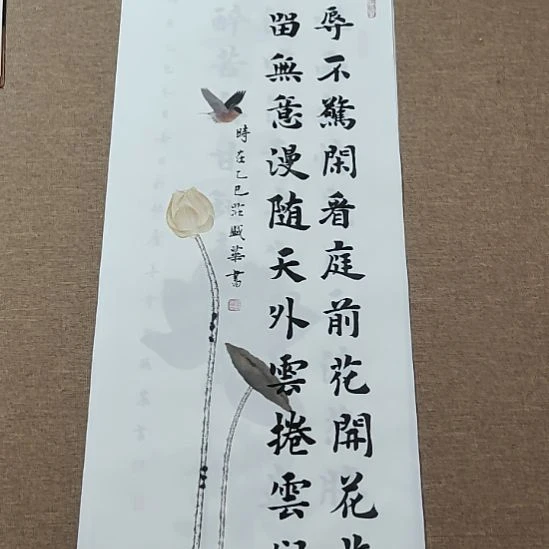 辱不驚閑看庭前花開花
留無意漫随天外雲捲雲
時在乙巳莊威華書